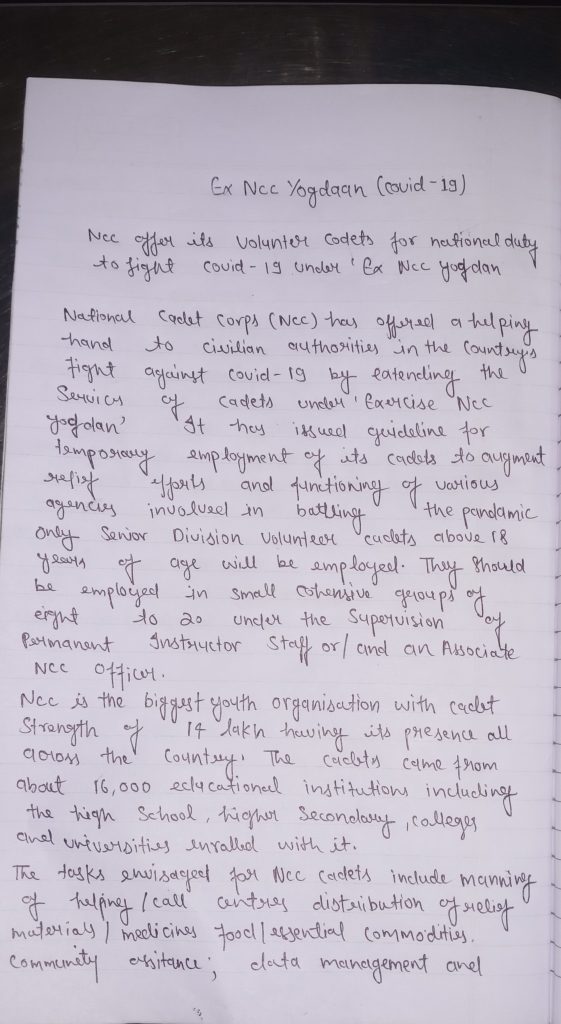 Ex Ncc Yogdaan (covid-19)
Ncc offer its volunter codets for national duty
to fight covid-19 under 'Ex Ncc yogdan
National Cadet Corps (Ncc) has offered a helping
hand to civilian authorities in the Country's
Fight against covid-19 by extending the
Services of cadets under 'Exercise Ncc
yogdan' It has issued guideline for
temporary employment of its cadets to augment
relief efforts and functioning of various
agencies involved in battling the pandamic
only Senior Division Volunteer cadets above 18
years of age will be employed. They should
be employed in small cohensive groups of
eight to 20 under the Supervision of
Permanent Instructor Staff or/and an Associate
NCC Officer.
Ncc is the biggest youth organisation with cadet
Strength of 14 lakh having its presence all
across the country. The cadets came from
about 16,000 educational institutions including
the high School, higher Secondary, colleges
and universities enralled with it.
The tasks envisaged for Ncc cadets include manning
of helping/call centres distribution of relief
materials/medicines food/essential commodities.
Community assitance; data management and